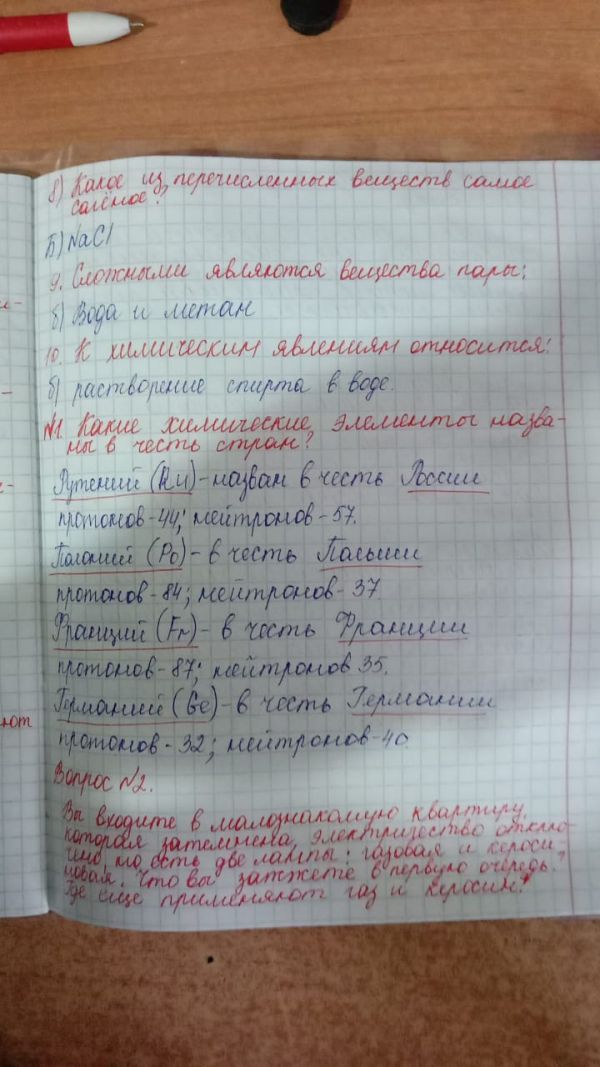 8) Какое из перечисленных веществ самое
солёное?
Б) NaCl
9. Сложными являются вещества пары:
б) Вода и метан
10. К химическим явлениям относится:
б) растворение спирта в воде.
№1. Какие химические элементы назва-
ны в честь стран?
Рутений (Ru) - назван в честь России
протонов - 44; нейтронов - 57.
Полоний (Po) - в честь Польши
протонов - 84; нейтронов - 37
Франций (Fr) - в честь Франции
протонов - 87; нейтронов 35.
Германий (Ge) - в честь Германии
протонов - 32; нейтронов - 40
Вопрос №2.
Вы входите в малознакомую квартиру,
которая затемнена, электричество отклю-
чено, но есть две лампы: газовая и кероси-
новая. Что вы зажжете в первую очередь?
Где еще применяют газ и керосин?